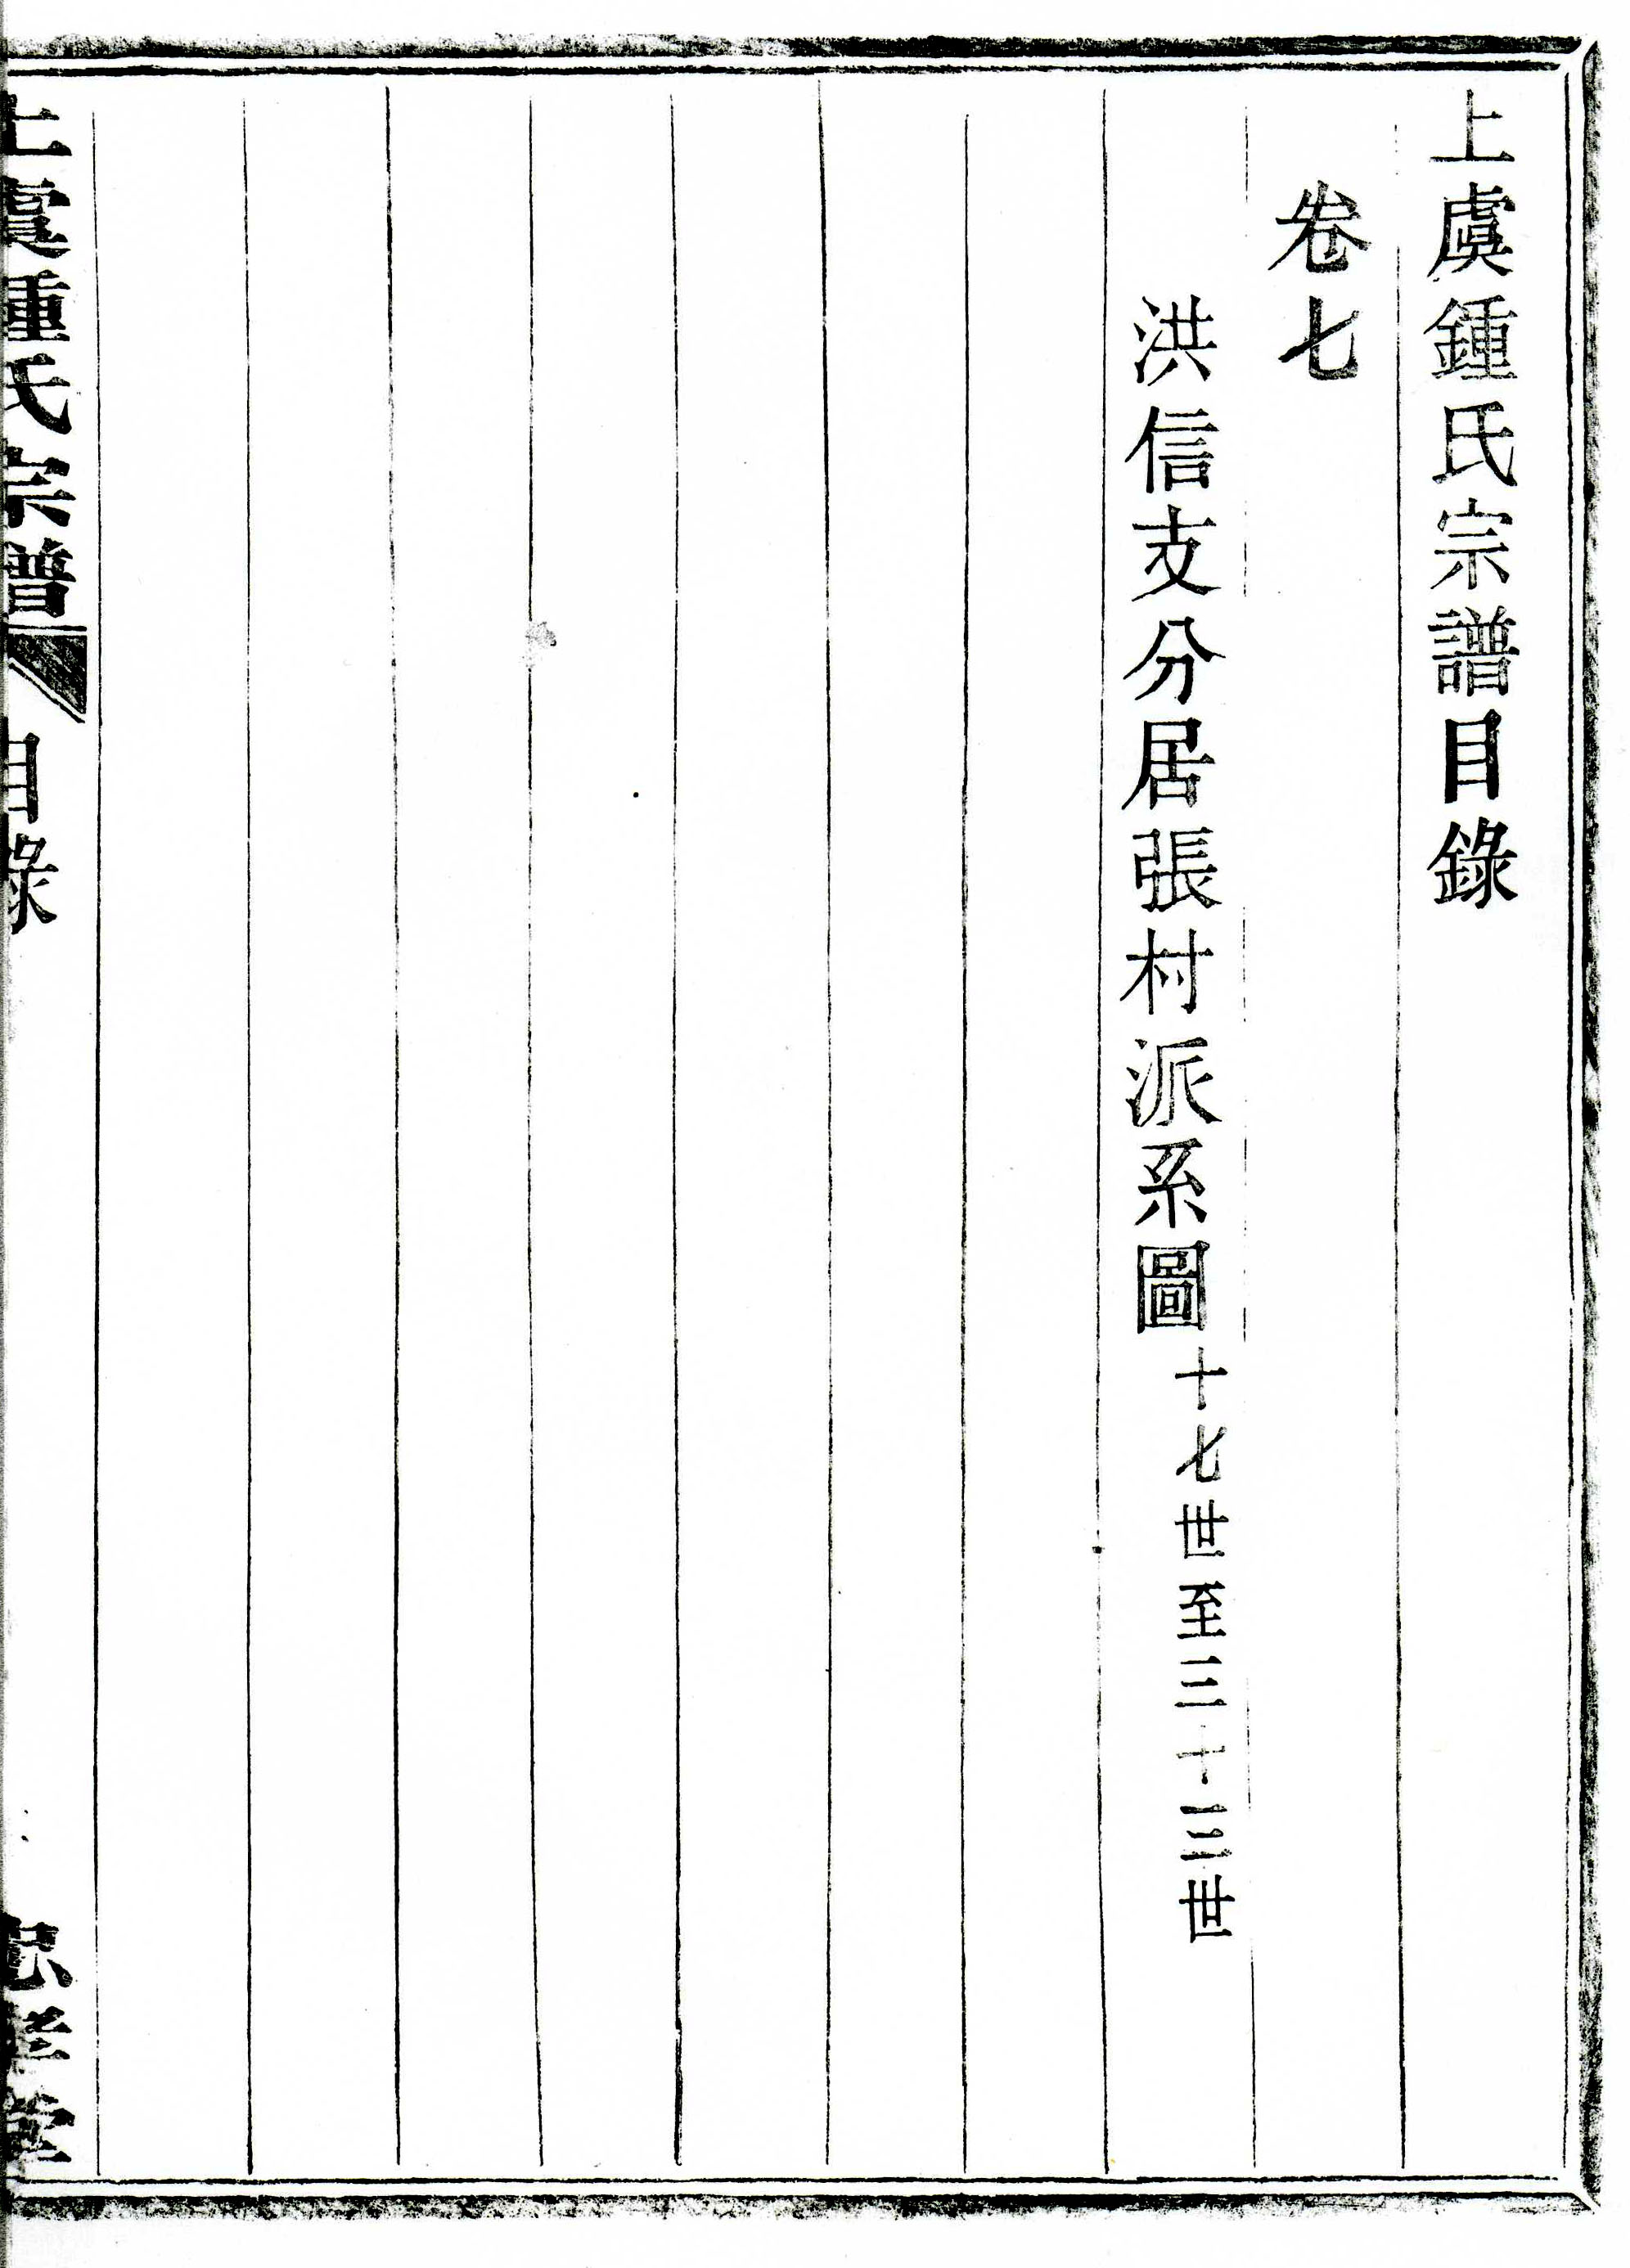 上虞鍾氏宗譜目錄
卷七
洪信支分居張村派系圖十七世至三十三世
上虞鍾氏宗譜 目錄 忠孝堂